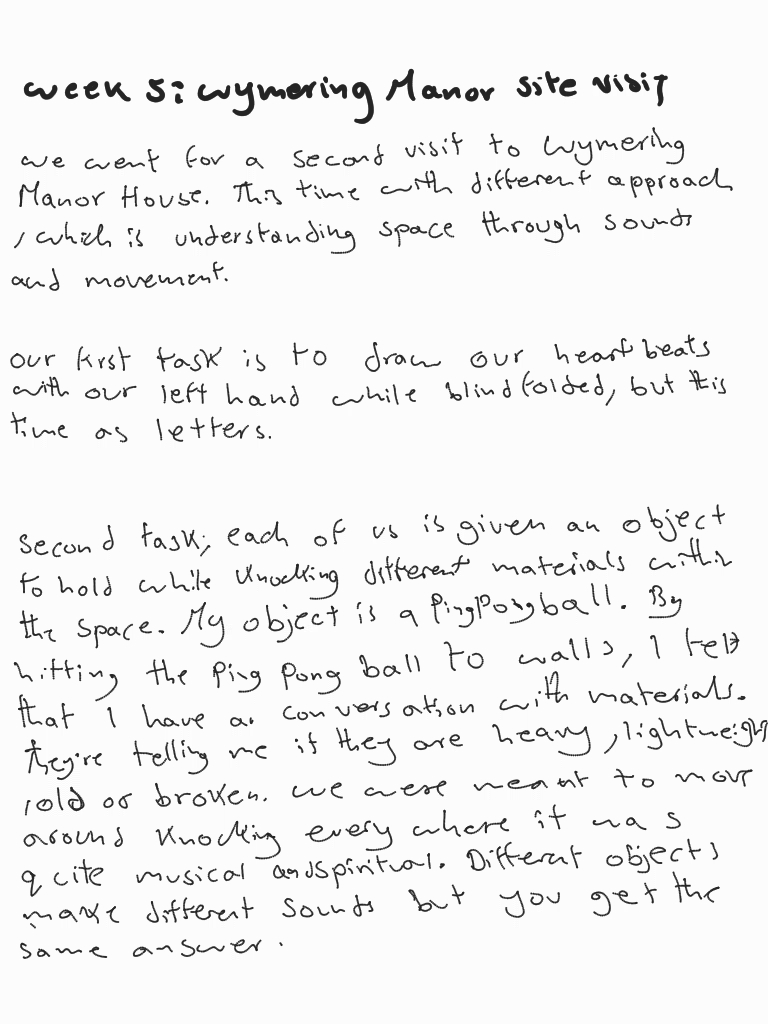 week 5: Wymering Manor site visit
we went for a second visit to Wymering
Manor House. This time with different approach
, which is understanding space through sounds
and movement.
our first task is to draw our heart beats
with our left hand while blindfolded, but this
time as letters.
Second task, each of us is given an object
to hold while knocking different materials within
the space. My object is a PingPongball. By
hitting the Ping Pong ball to walls, I felt
that I have a conversation with materials.
they're telling me if they are heavy, lightweight
, old or broken. we were meant to move
around knocking every where it was
quite musical and spiritual. Different objects
make different sounds but you get the
same answer.